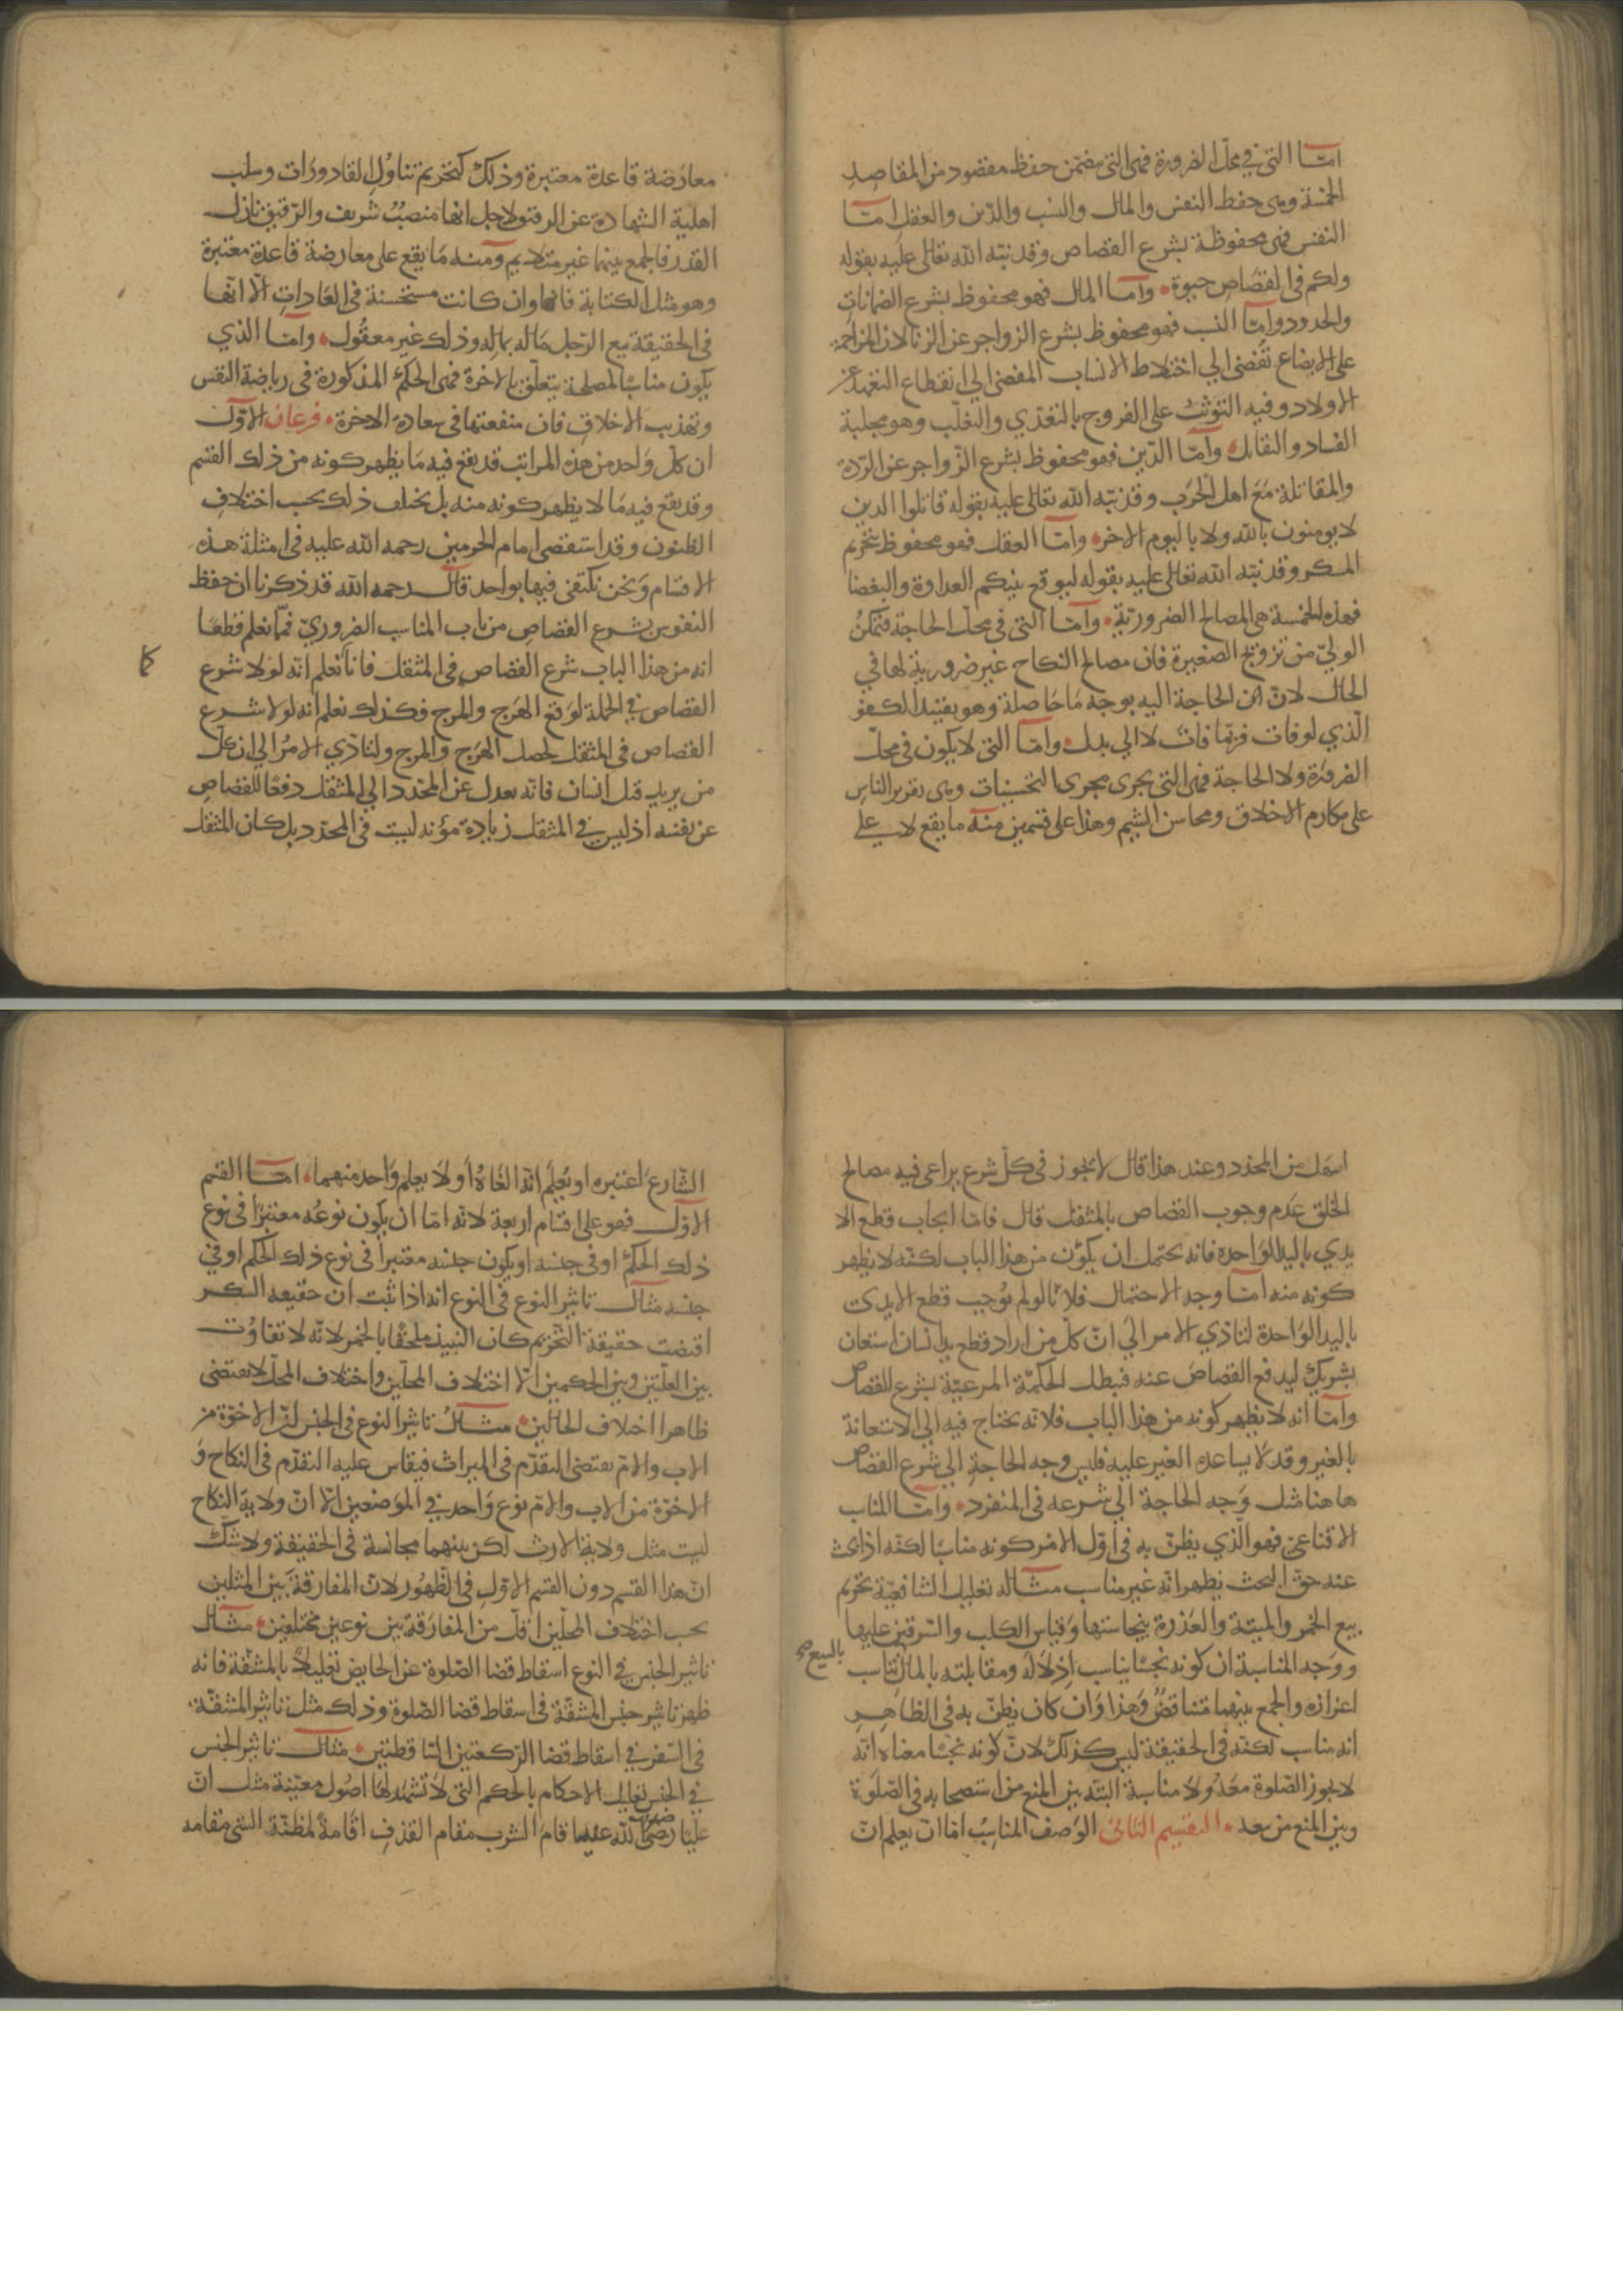 امّا التي في محلّ الضرورة فهي التي تتضمّن حفظ مقصود من المقاصد
الخمسة وهي حفظ النفس والمال والنسب والدّين والعقل امّا
النفس فهي محفوظة بشرع القصاص وقد نبّه الله تعالى عليه بقوله
ولكم في القصاص حيوة وامّا المال فهو محفوظ بشرع الضمانات
والحدود وامّا النسب فهو محفوظ بشرع الزواجر عن الزنا لان المزاحمة
على الابضاع تفضي الي اختلاط الانساب المفضي الي انقطاع التعهد عن
الاولاد وفيه التوثّب على الفروج بالتعدّي والتغلّب وهو مجلبة
الفساد والتقاتل وامّا الدّين فهو محفوظ بشرع الزّواجر عن الرّدة
والمقاتلة مع اهل الحرب وقد نبّه الله تعالى عليه بقوله قاتلوا الذين
لا يومنون بالله ولا باليوم الاخر وامّا العقل فهو محفوظ بتحريم
المسكر وقد نبّه الله تعالى عليه بقوله ليوقع بينكم العداوة والبغضا
فهذه الخمسة هي المصالح الضروريّة وامّا التي في محلّ الحاجة فتمكنُ
الوليّ من تزويج الصغيرة فان مصالح النكاح غير ضرورية لها في
الحال لانّ الحاجة اليه بوجه ما حاصلة وهو تقييد الكفو
الّذي لو فات فربّما فات لا الي بدل وامّا التي لا يكون في محلّ
الضرورة ولا الحاجة فهي التي تجري مجرى التحسينات وهي تقرير الناس
على مكارم الاخلاق ومحاسن الشيم وهذا على قسمين منه ما يقع لا علي
معارضة قاعدة معتبرة وذلك كتحريم تناول القاذورات وسلب
اهلية الشهادة عن الرقيق لاجل انها منصبٌ شريف والرّقيق نازل
القدر فالجمع بينهما غير متلايم ومنه ما يقع على معارضة قاعدة معتبرة
وهو مثل الكتابة فانها وان كانت مستحسنة في العادات الّا انّها
في الحقيقة بيع الرّجل ماله بماله وذلك غير معقول وامّا الذي
يكون مناسبًا لمصلحة يتعلّق بالاخرة فهي الحكم المذكورة في رياضة النفس
وتهذيب الاخلاق فان منفعتها في سعادة الاخرة فرعان الاوّل
ان كلّ واحد من هذه المراتب قد يقع فيه ما يظهر كونه من ذلك القسم
وقد يقع فيه ما لا يظهر كونه منه بل يختلف ذلك بحسب اختلاف
الظنون وقد استقصى امام الحرمين رحمه الله عليه في امثلة هذه
الاقسام ونحن نكتفي فيها بواحد قال رحمه الله قد ذكرنا ان حفظ
النفوس بشرع القصاص من باب المناسب الضروريّ فمّا نعلم قطعًا
انه من هذا الباب شرع القصاص في المثقل فانّا نعلم انّه لولا شرع
القصاص في الجملة لوقع الهرج والمرج فكذلك نعلم انه لولا شرع
القصاص في المثقل لحصل الهرج والمرج ولتاذّي الامرُ الي ان كلّ
من يريد قتل انسان فانّه يعدل عن المحدّد الي المثقل دفعًا للقصاص
عن نفسه اذ ليس في المثقل زيادة مؤنه ليست في المحدّد بل كان المثقل
اسهل من المحدّد وعند هذا قال لا يجوز في كلّ شرع يراعى فيه مصالح
الخلق عدم وجوب القصاص بالمثقل قال فامّا ايجاب قطع الا
يدي باليد الواحدة فانه يحتمل ان يكون من هذا الباب لكنّه لا يظهر
كونه منه امّا وجه الاحتمال فلانّا لو لم نوجب قطع الايدي
باليد الواحدة لتاذّي الامر الي انّ كلّ من اراد قطع يد انسان استعان
بشريكٍ ليدفع القصاص عنه فتبطل الحكمة المرعيّة بشرع القصاص
وامّا انه لا يظهر كونه من هذا الباب فلانّه يحتاج فيه الي الاستعانة
بالغير وقد لا يساعده الغير عليه فليس وجه الحاجة الي شرع القصاص
هاهنا مثل وجه الحاجة الي شرعه في المنفرد وامّا المناسب
الاقناعيّ فهو الّذي يظنّ به في اوّل الامر كونه مناسبًا لكنّه اذا بحث
عنه حقّ البحث يظهر انّه غير مناسب مثاله تعليل الشافعيّة تحريم
بيع الخمر والميتة والعذرة بنجاستها وقياس الكلب والسّرقين عليها
ووجه المناسبة ان كونه نجسًا يناسب اذلاله ومقابلته بالمال بالبيع صح تناسب
اعزازه والجمع بينهما متناقضٌ وهذا وان كان يظنّ به في الظاهر
انه مناسب لكنّه في الحقيقة ليس كذلك لانّ كونه نجسًا معناه انّه
لا يجوز الصّلوة معه ولا مناسبة البتّة بين المنع من استصحابه في الصّلوة
وبين المنع من بيعه التقسيم الثاني الوصف المناسب امّا ان يعلم انّ
الشارع اعتبره او يُعلم انّه الغاهُ او لا يعلم واحد منهما امّا القسم
الاوّل فهو على اقسام اربعة لانّه امّا ان يكون نوعُه معتبرًا في نوع
ذلك الحكم او في جنسه او يكون جنسه معتبرًا في نوع ذلك الحكم او في
جنسه مثال تاثير النوع في النوع انه اذا ثبت ان حقيقه السكر
اقتضت حقيقة التّحريم كان النبيذ ملحقًا بالخمر لانّه لا تفاوت
بين العلّتين وبين الحكمين الّا اختلاف المحلّين واختلاف المحلّ لا يقتضي
ظاهرا اختلاف الحالين مثالُ تاثير النوع في الجنس انّ الاخوّة من
الاب والامّ يقتضي التقدّم في الميراث فيقاس عليه التقدّم في النكاح و
الاخوّة من الاب والامّ نوع واحد في الموضعين الّا انّ ولاية النكاح
ليست مثل ولاية الارث لكن بينهما مجانسة في الحقيقة ولا شكّ
انّ هذا القسم دون القسم الاوّل في الظهور لانّ المفارقة بين المثلين
بحسب اختلاف المحلّين اقلّ من المفارقة بين نوعين مختلفين مثال
تاثير الجنس في النوع اسقاط قضا الصّلوة عن الحايض تعليلًا بالمشقّة فانه
ظهر تاثير جنس المشقّة في اسقاط قضا الصّلوة وذلك مثل تاثير المشقّة
في السّفر في اسقاط قضا الرّكعتين السّاقطتين مثال تاثير الجنس
في الجنس تعليل الاحكام بالحكم التي لا تشهد لها اصول معيّنة مثل انّ
عليّا رضي الله عنه اقام الشرب مقام القذف اقامةً لمظنّة الشي مقامه